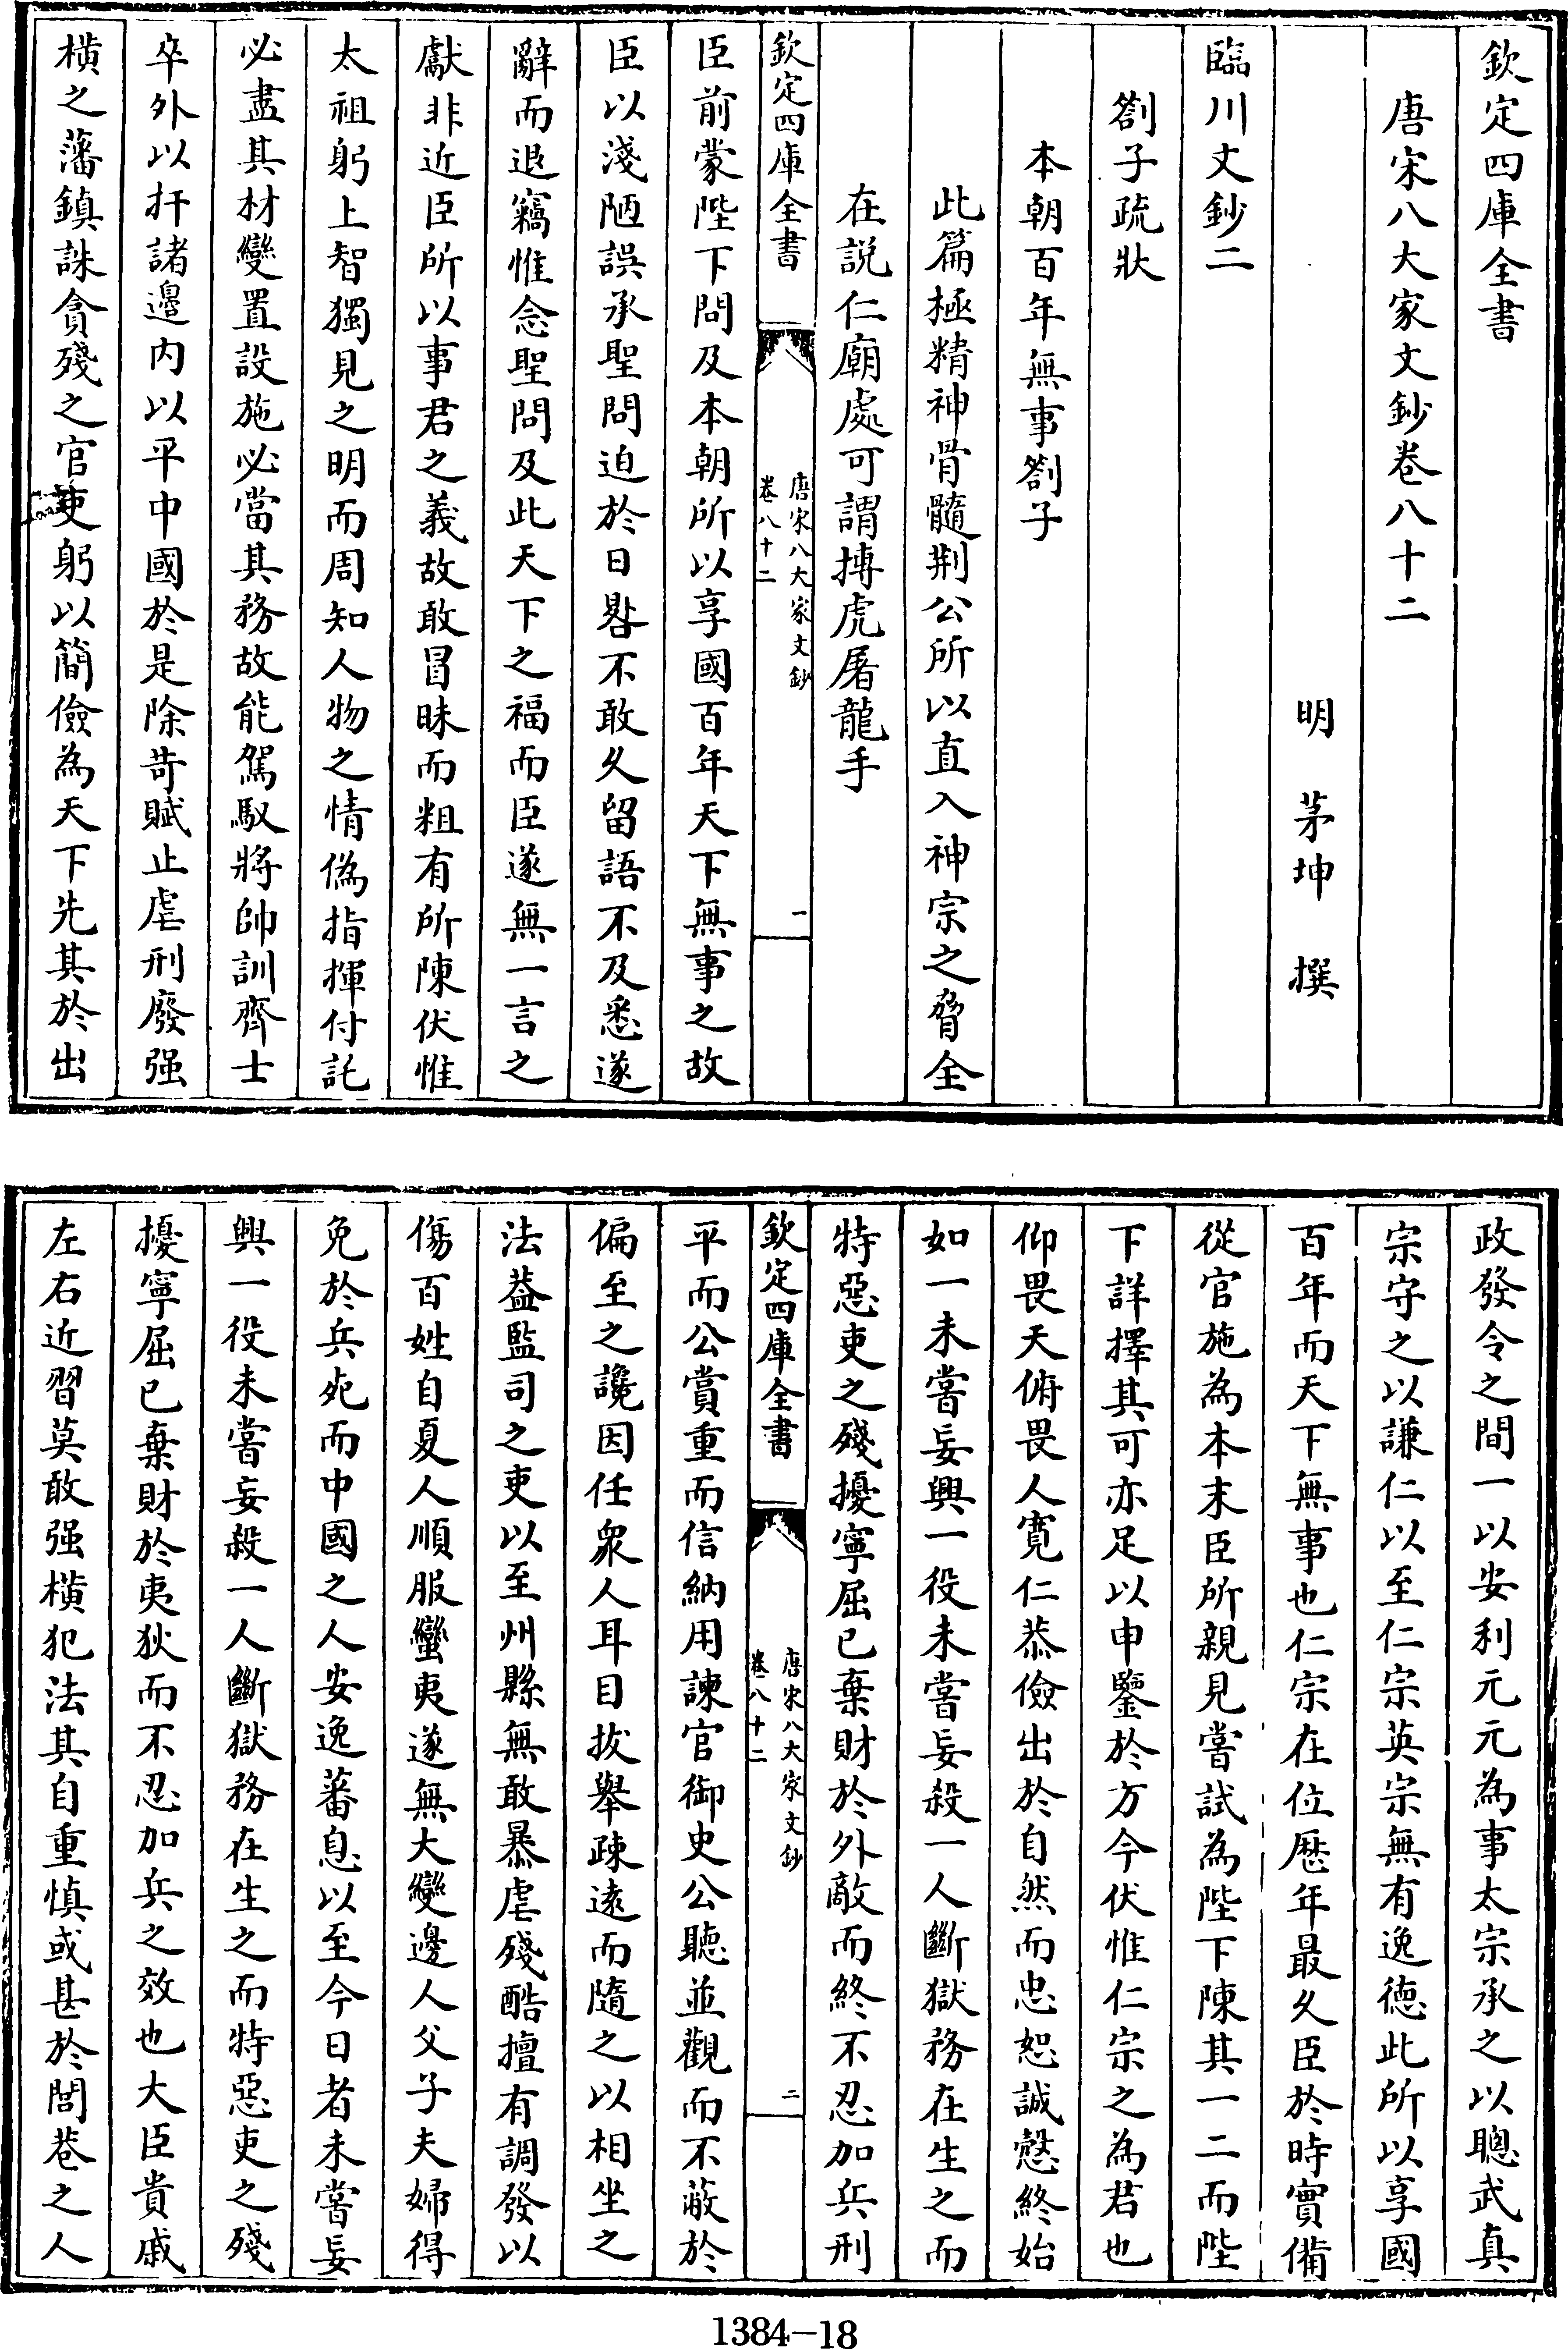 欽定四庫全書
唐宋八大家文鈔卷八十二
明 茅坤 撰
臨川文鈔二
劄子疏狀
本朝百年無事劄子
此篇極精神骨髓荆公所以直入神宗之脅全
在説仁廟處可謂摶虎屠龍手
欽定四庫全書
唐宋八大家文鈔
卷八十二
一
臣前蒙陛下問及本朝所以享國百年天下無事之故
臣以淺陋誤承聖問迫於日晷不敢久留語不及悉遂
辭而退竊惟念聖問及此天下之福而臣遂無一言之
獻非近臣所以事君之義故敢冒昧而粗有所陳伏惟
太祖躬上智獨見之明而周知人物之情偽指揮付託
必盡其材變置設施必當其務故能駕馭將帥訓齊士
卒外以扞諸邊内以平中國於是除苛賦止虐刑廢强
橫之藩鎮誅貪殘之官吏躬以簡儉為天下先其於出
政發令之間一以安利元元為事太宗承之以聰武真
宗守之以謙仁以至仁宗英宗無有逸徳此所以享國
百年而天下無事也仁宗在位歴年最久臣於時實備
從官施為本末臣所親見嘗試為陛下陳其一二而陛
下詳擇其可亦足以申鑒於方今伏惟仁宗之為君也
仰畏天俯畏人寛仁恭儉出於自然而忠恕誠慤終始
如一未嘗妄興一役未嘗妄殺一人斷獄務在生之而
特惡吏之殘擾寧屈已棄財於外敵而終不忍加兵刑
欽定四庫全書
唐宋八大家文鈔
卷八十二
二
平而公賞重而信納用諫官御史公聽並觀而不蔽於
偏至之讒因任衆人耳目拔舉疎逺而隨之以相坐之
法葢監司之吏以至州縣無敢暴虐殘酷擅有調發以
傷百姓自夏人順服蠻夷遂無大變邊人父子夫婦得
免於兵死而中國之人安逸蕃息以至今日者未嘗妄
興一役未嘗妄殺一人斷獄務在生之而特惡吏之殘
擾寧屈已棄財於夷狄而不忍加兵之效也大臣貴戚
左右近習莫敢强橫犯法其自重慎或甚於閭巷之人
1384-18